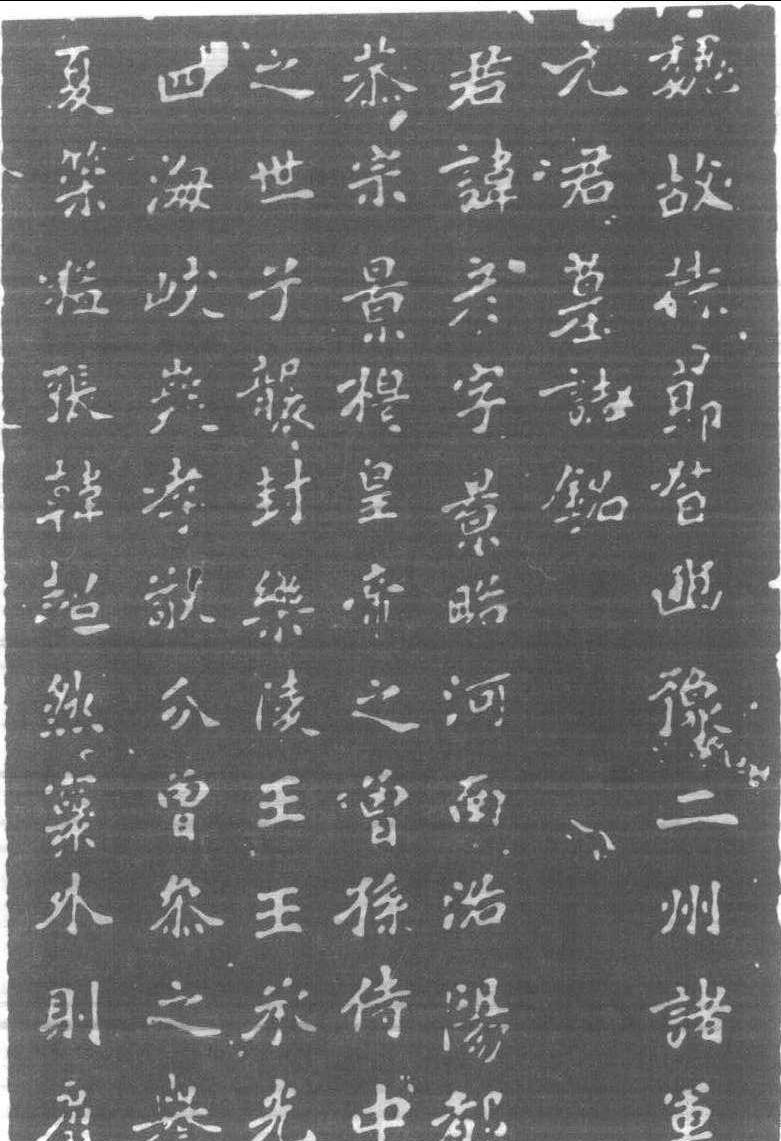 魏故持節督幽豫二州諸軍
元君墓誌銘
君諱彥字景略河南洛陽都
恭宗景穆皇帝之曾孫侍中
之世子襲封樂陵王王承光
四海岐嶷孝敬分曾參之譽
夏築張韓超然外則